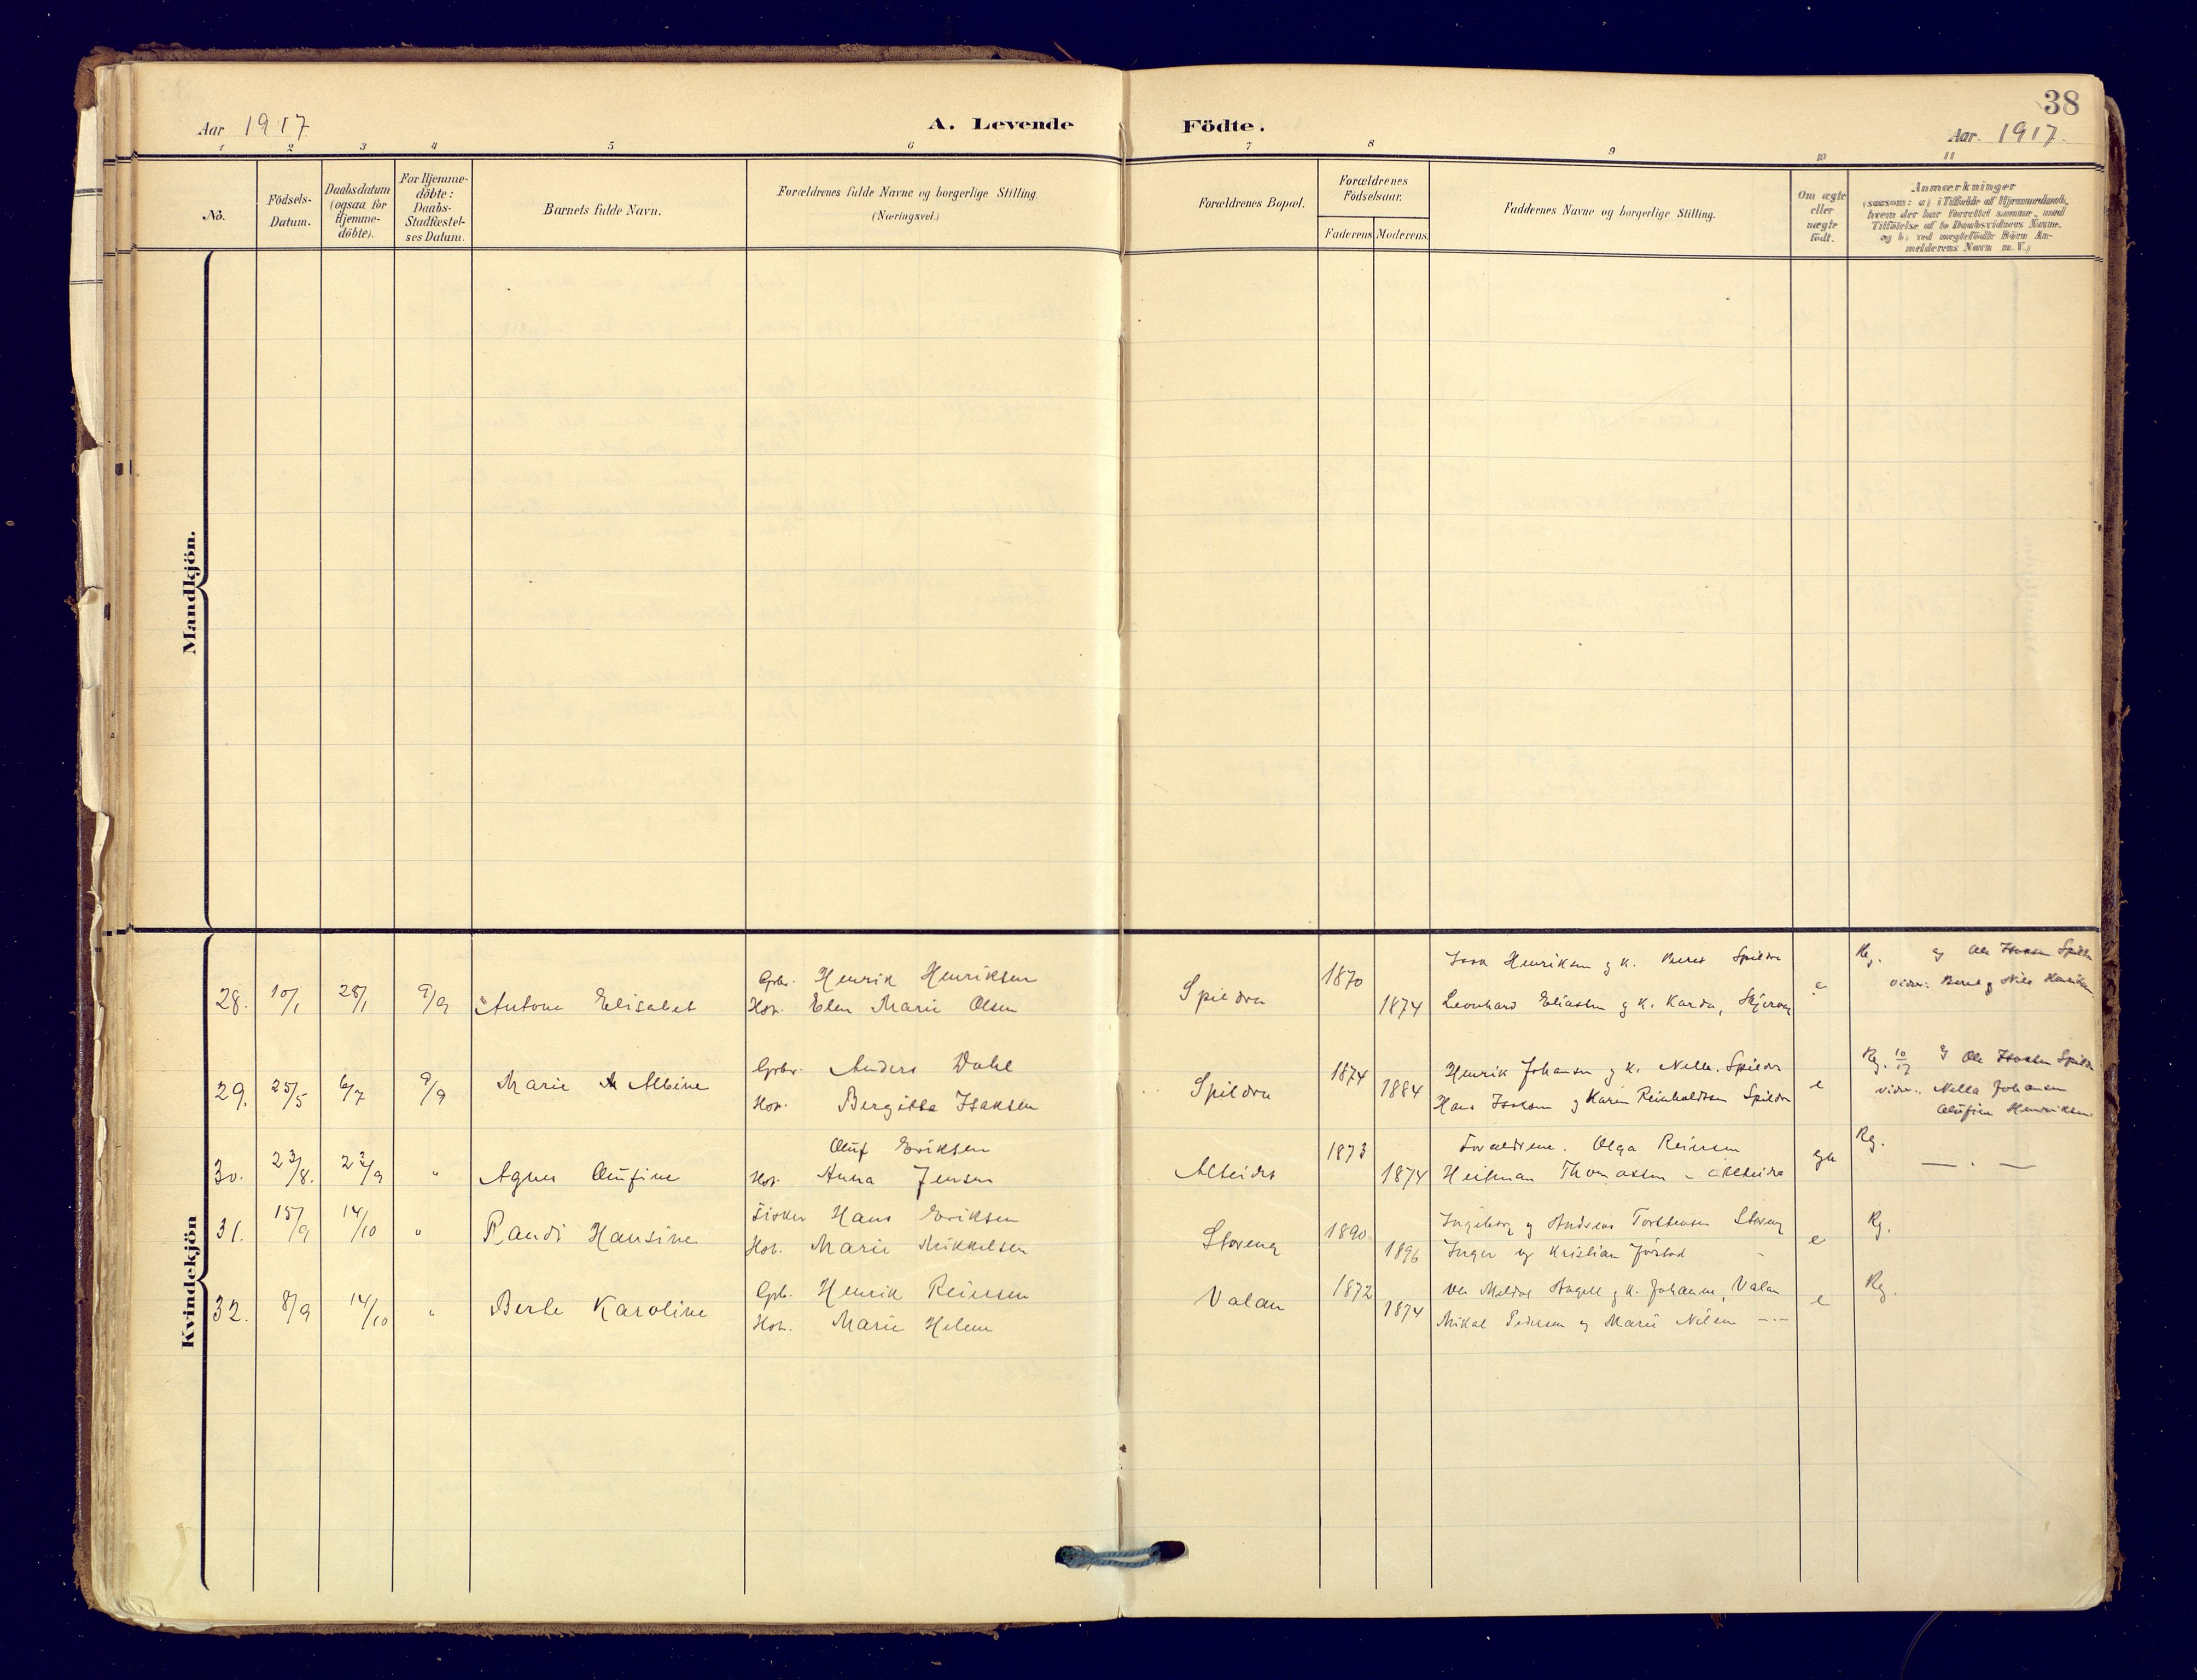 38
Aar 1917
A. Levende Födte.
Aar 1917.
1 2 3 4 5 6 7 8 9 10 11
No.
Födsels-Datum.
Daabsdatum (ogsaa for Hjemme-döbte).
For Hjemme-döbte: Daabs-Stadfæstel-ses Datum.
Barnets fulde Navn.
Forældrenes fulde Navne og borgerlige Stilling. (Næringsvei.)
Forældrenes Bopæl.
Forældrenes Födselsaar.
Faderens Moderens.
Faddernes Navne og borgerlige Stilling.
Om ægte eller uægte födt.
Anmærkninger
(saasom: a) i Tilfælde af Hjemmedaab, hvem der har forrettet samme, med Tilföielse af to Daabsvidners Navne, og b) ved uægtefödte Börn An-melderens Navn m. V.)
Mandkjön.
Kvindekjön
28. 10/1 28/1 9/9 Antone Elisabet
Gbr. Henrik Henriksen
Hst. Elen Marie Olsen
Spildra 1870 1874
Isak Henriksen og k. Beret Spildra
Leonhard Eliassen og k. Karda, Skjervøy
e
Reg. og Ole Isaksen Spildra
vidner: Beret og Nils Henriksen
29. 25/5 6/7 9/9 Marie Albine
Gbr. Anders Dahl
Hst. Bergitte Isaksen
Spildra 1874 1884
Henrik Johansen og k. Nella. Spildra
Hans Isaksen og Karen Reinholdtsen Spildra
e
Reg. 10/17 og Ole Isaksen Spildra
vidner. Nella Johansen
Olufine Henriksen
30. 23/8. 23/9 " Agnes Olufine
Oluf Eriksen
Hst. Anna Jensen
Alteidet 1873 1874
Forældrene. Olga Reiersen
Heitman Thomassen - Alteidet
Reg.
— . —
31. 15/9 14/10 " Randi Hansine
Fisker Hans Eriksen
Hst. Marie Mikkelsen
Storeng 1890 1896
Ingeborg og Andreas Torstensen Storeng
Inger og Kristian Jörstad -
e
Rg.
32. 8/9 14/10 " Berle Karoline
Gbr. Henrik Reiersen
Hst. Marie Helene
Valan 1872 1874
Angell og k. Johanne, Valan
Mikal Pedersen og Marie Nilsen —"—
e
Rg.